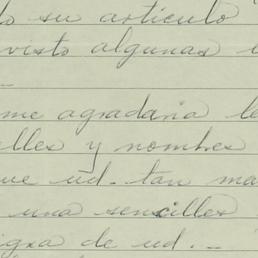 do su artículo
visto algunas
me agradaria le
lles y nombres
ue ud. tan ma
una sencilles
igna de ud. -